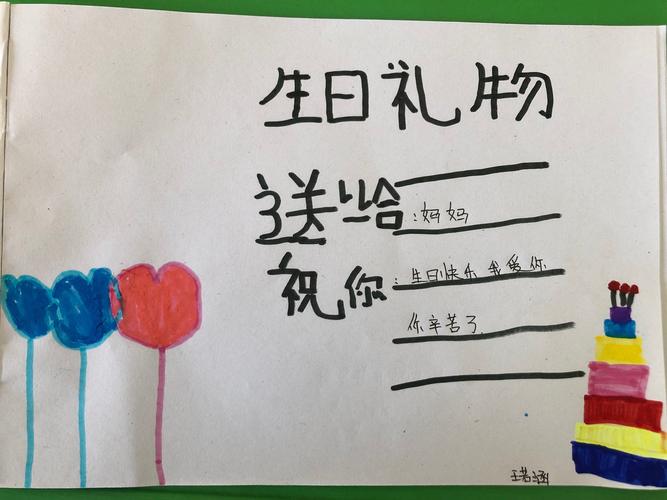 生日礼物
送给:妈妈
祝你:生日快乐 我爱你
你辛苦了
王若涵